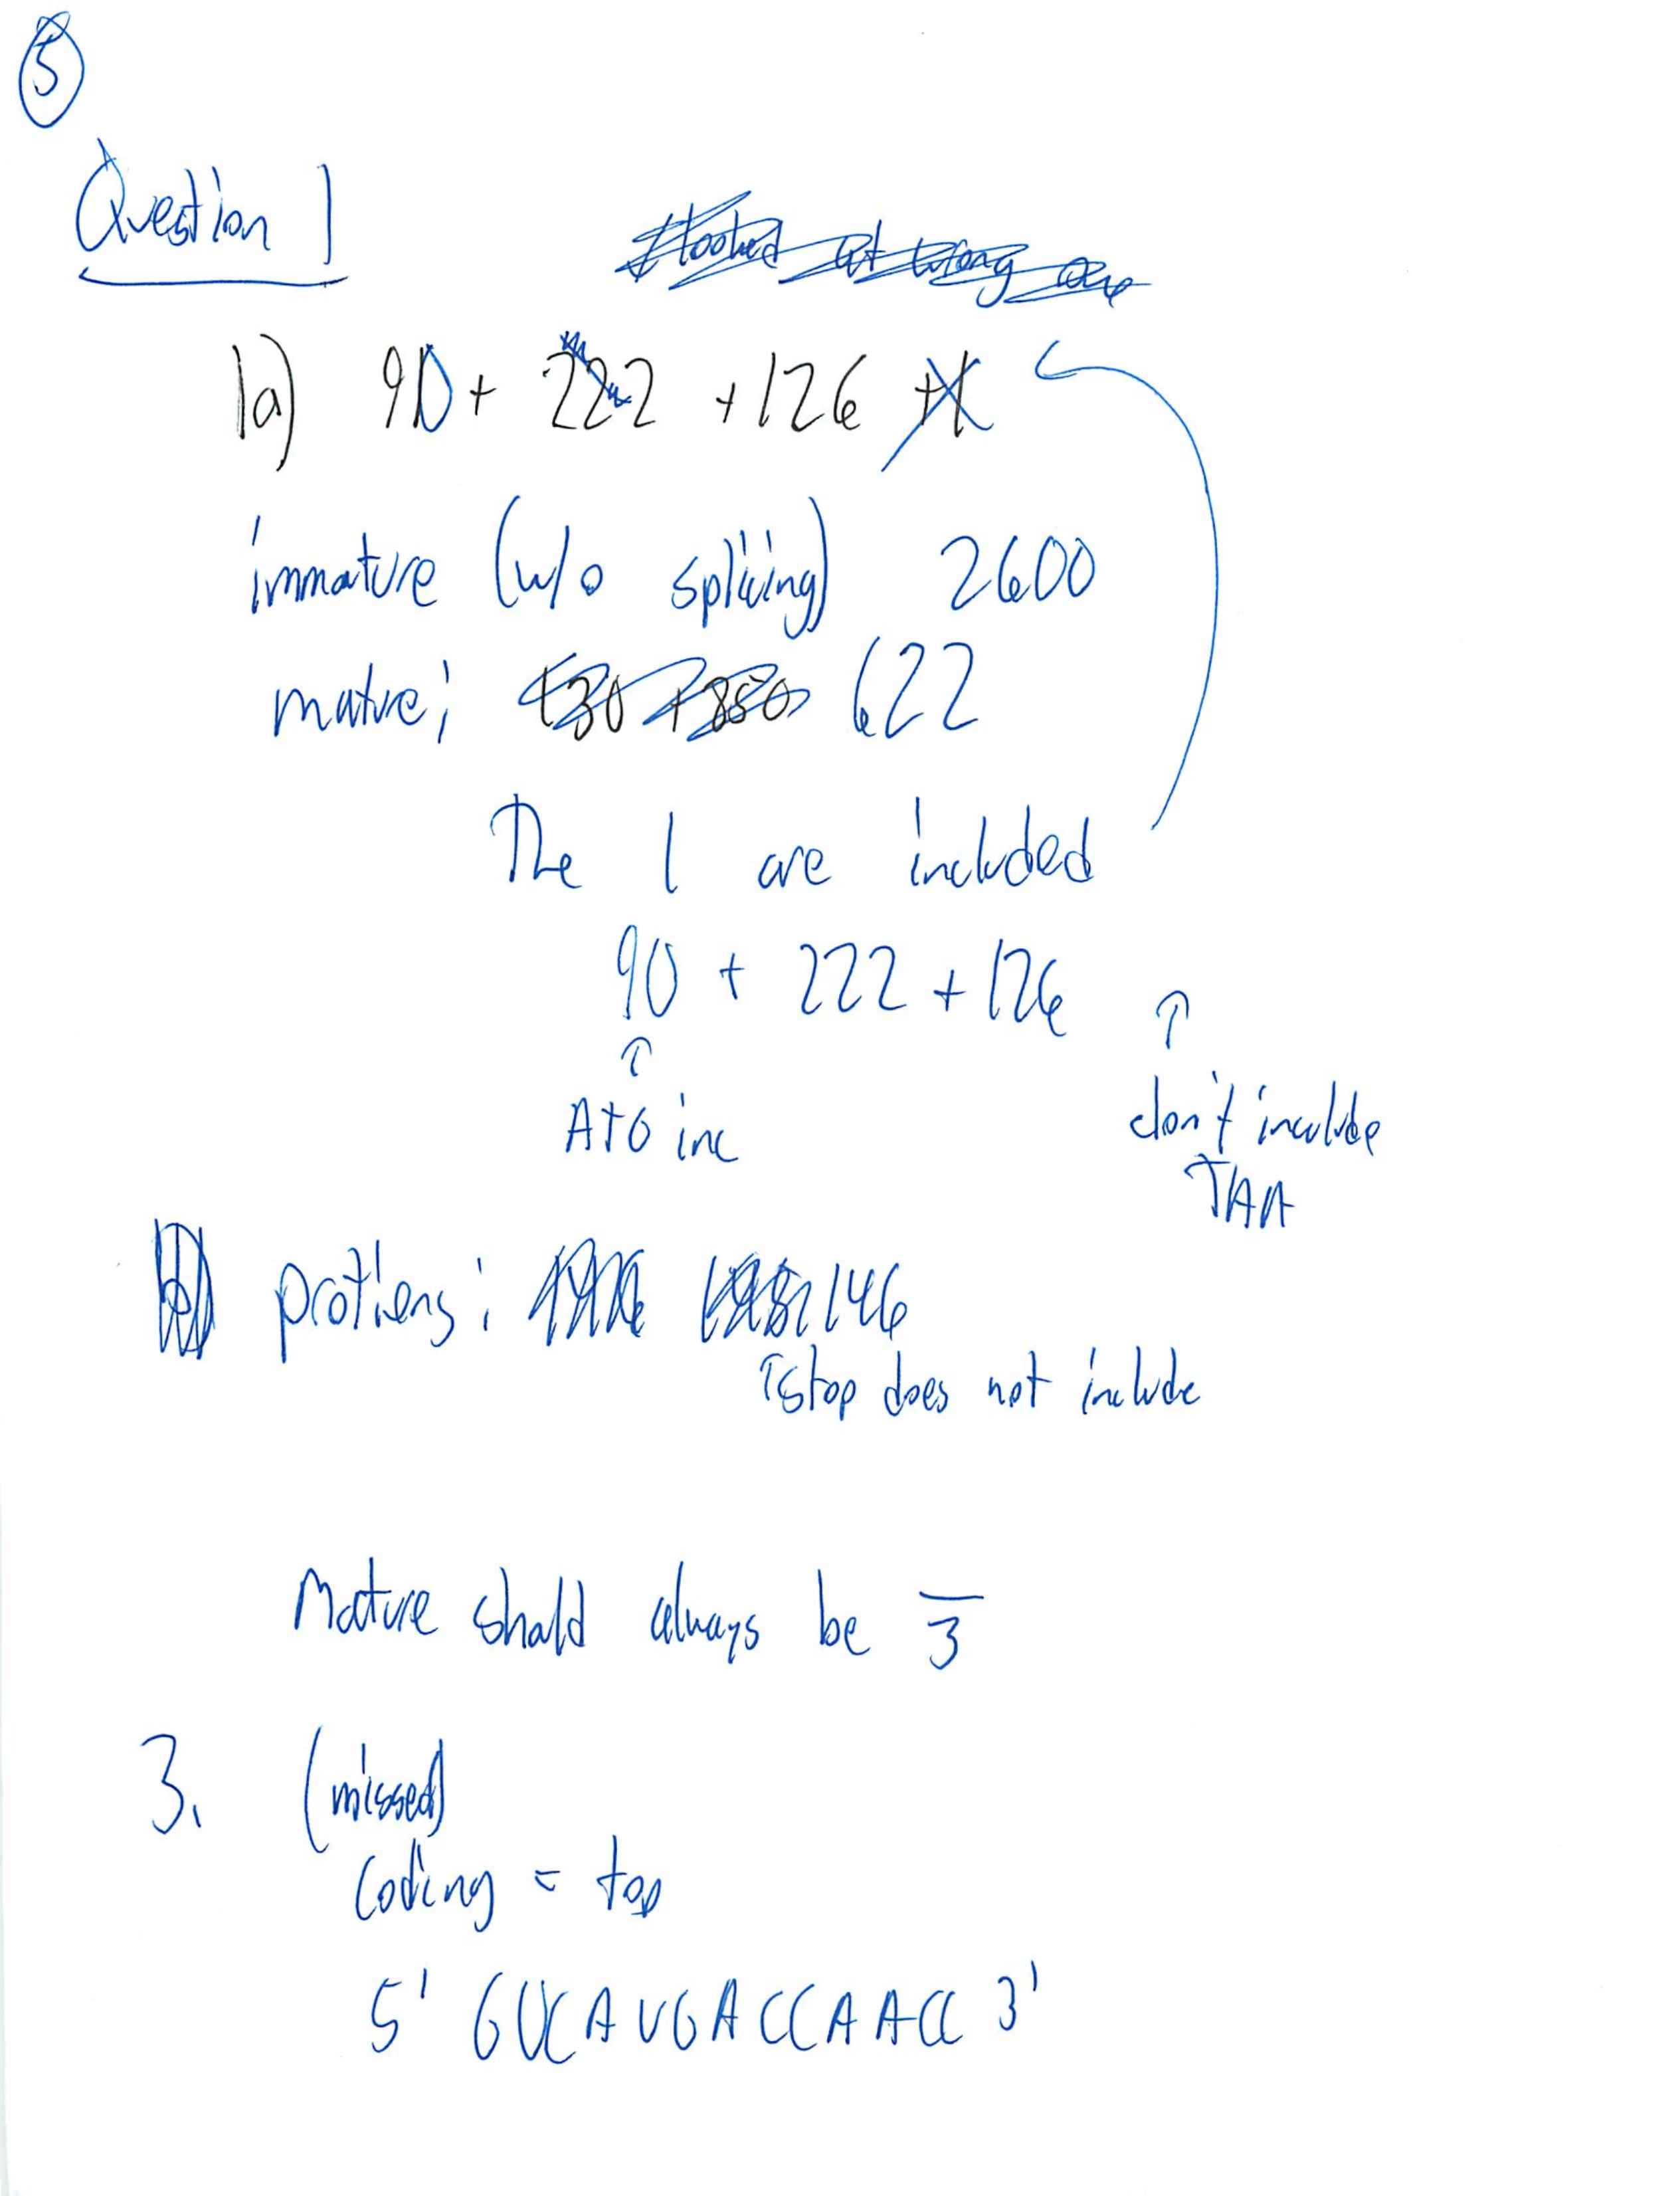 5
Question 1
1a) 90 + 222 + 126
immature (w/o splicing) 2600
mature: 622
The 1 are included
90 + 222 + 126
↑ ↑
ATG inc don't include
TAA
b) protiens: 146
↑stop does not include
Mature should always be —/3
3. (missed)
Coding = top
5' GUCAUGACCAACC 3'